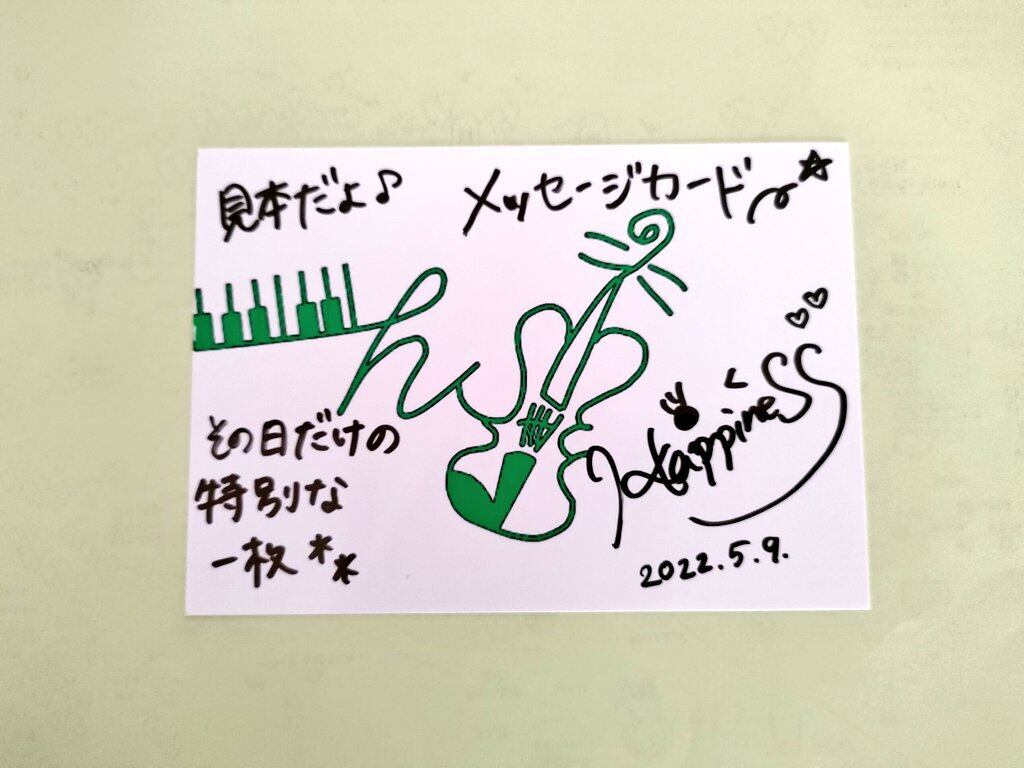 見本だよ♪
メッセージカード
その日だけの
特別な
一枚**
HappineSS
2022.5.9.